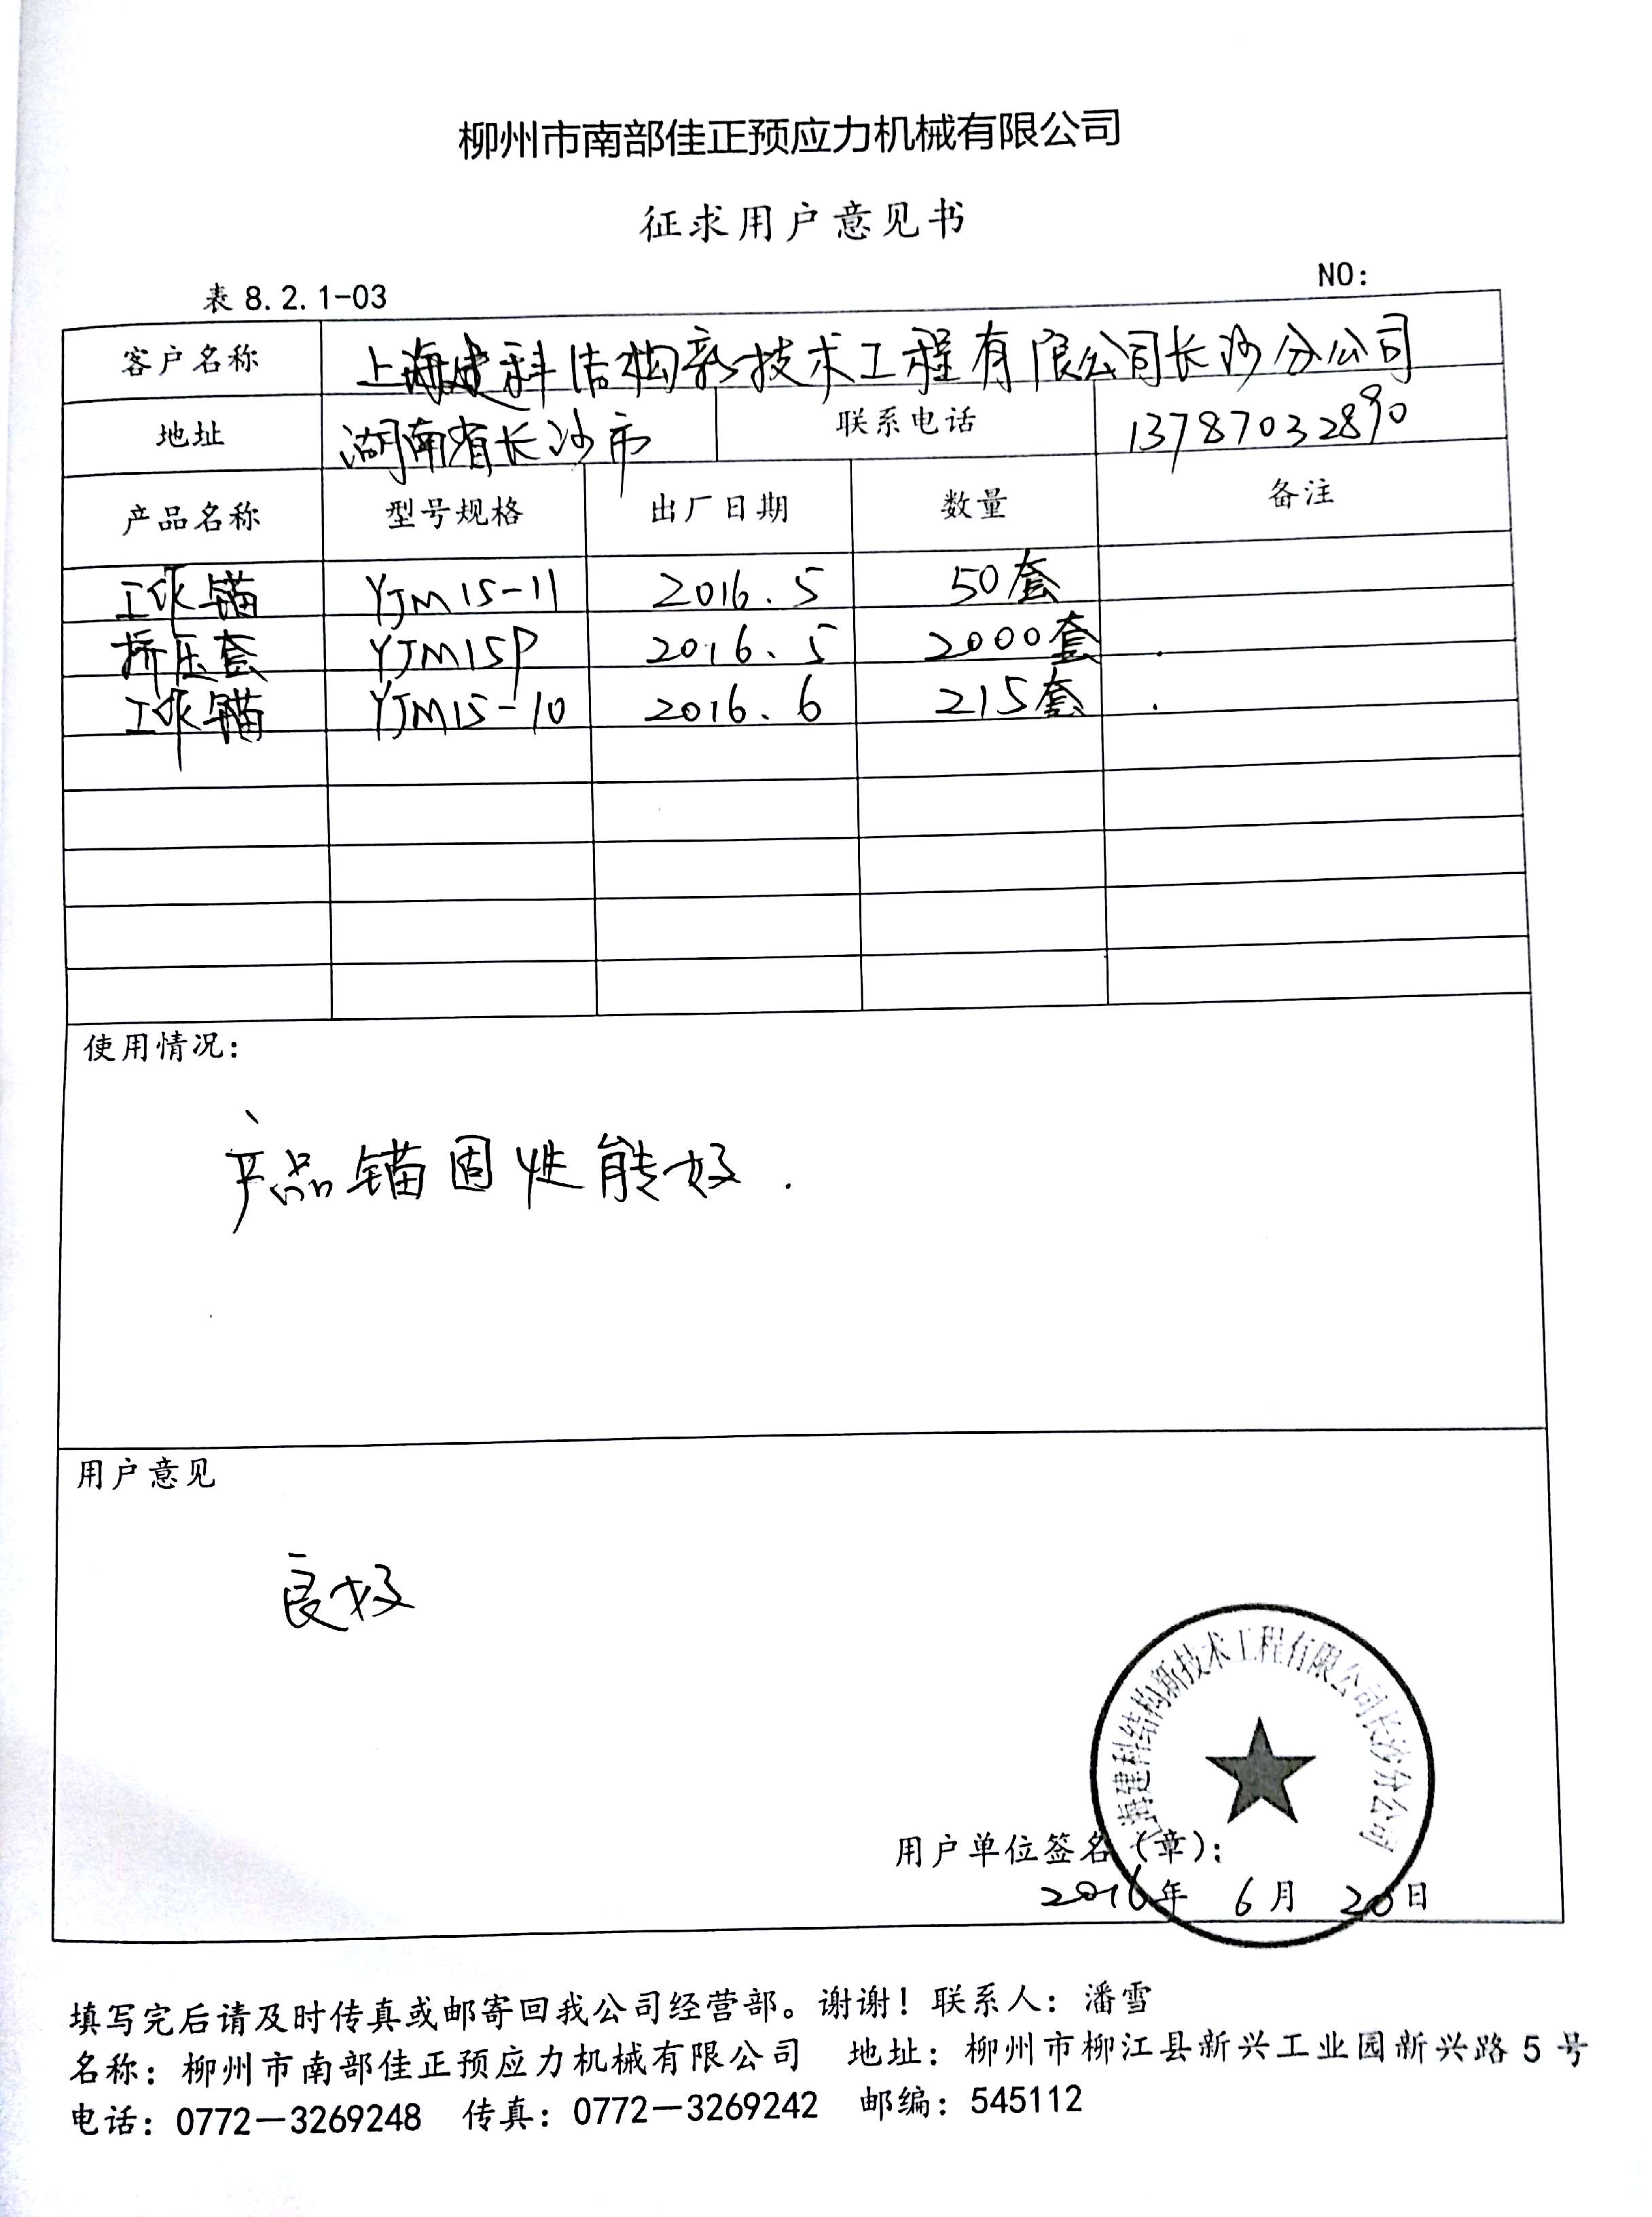 柳州市南部佳正预应力机械有限公司
征求用户意见书
表 8.2.1-03 NO:
客户名称 上海建科结构新技术工程有限公司长沙分公司
地址 湖南省长沙市 联系电话 13787032890
产品名称 型号规格 出厂日期 数量 备注
工作锚 YJM15-11 2016.5 50套
挤压套 YJM15P 2016.5 2000套
工作锚 YJM15-10 2016.6 215套
使用情况：
产品锚固性能好.
用户意见
良好
上海建科结构新技术工程有限公司长沙分公司
用户单位签名（章）：
2016年 6月 20日
填写完后请及时传真或邮寄回我公司经营部。谢谢！联系人：潘雪
名称：柳州市南部佳正预应力机械有限公司 地址：柳州市柳江县新兴工业园新兴路 5 号
电话：0772—3269248 传真：0772—3269242 邮编：545112